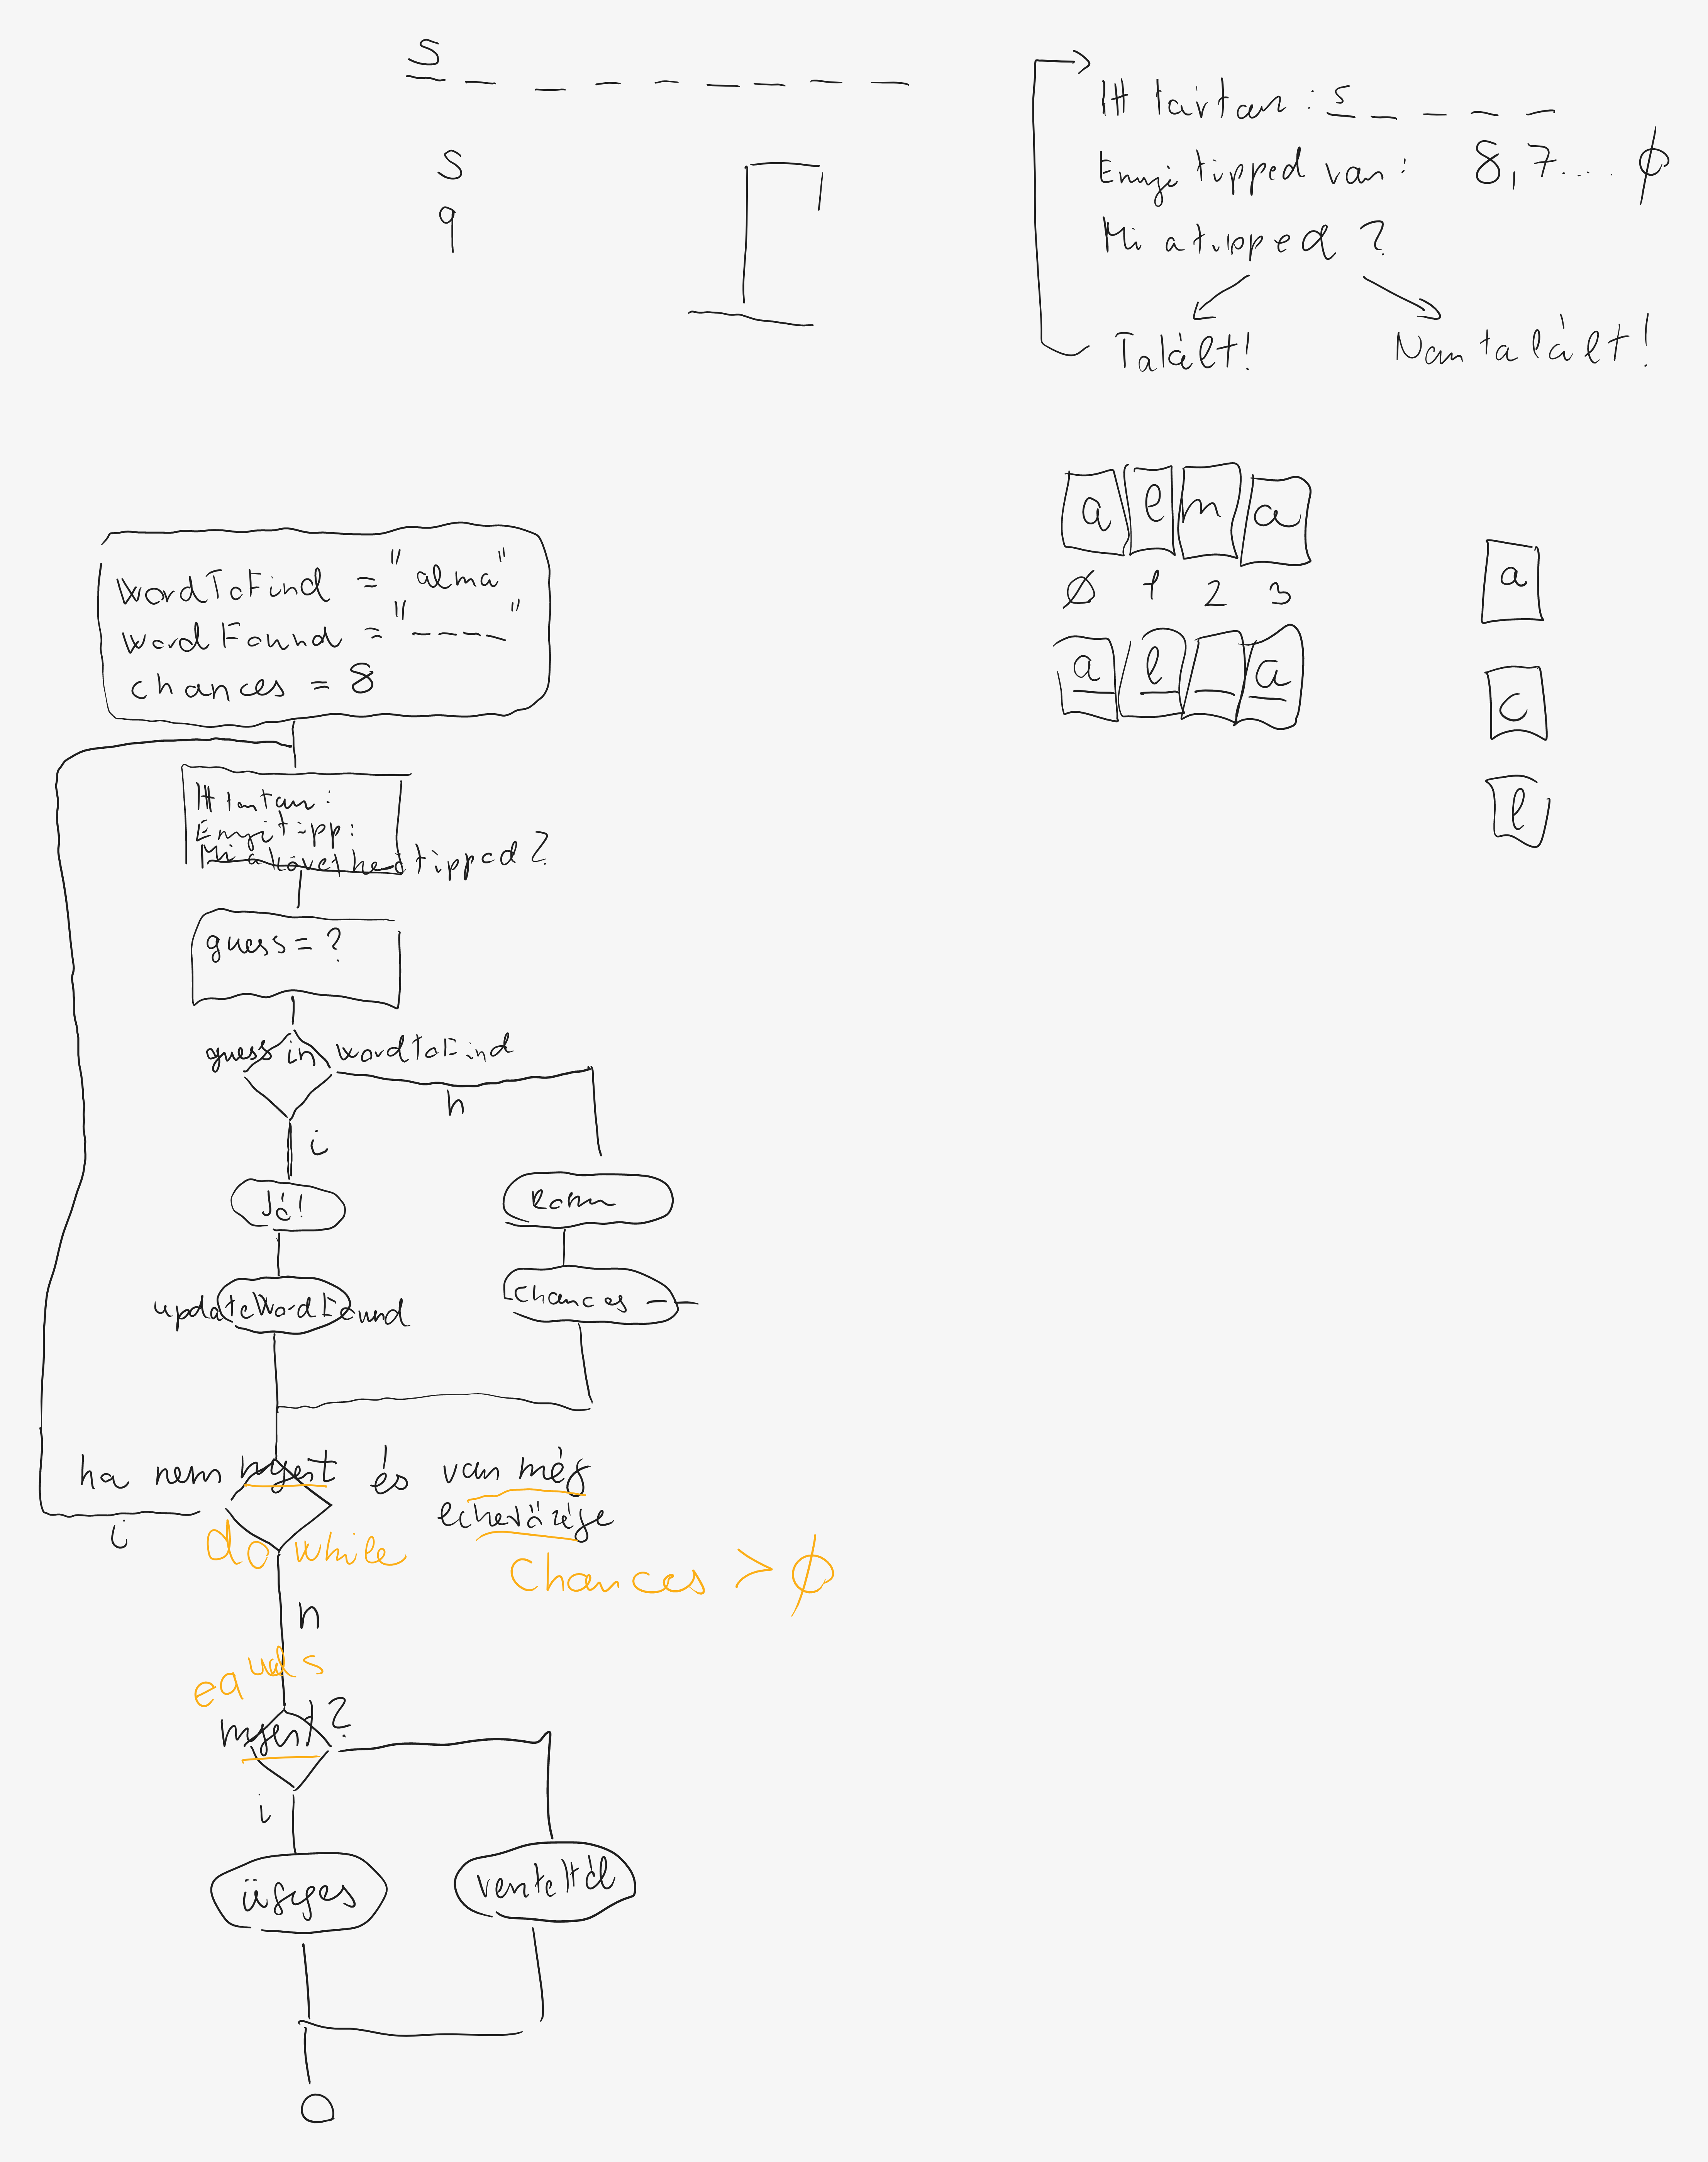 s
s
q
Itt tartasz: s _ _ _ _
Ennyi tipped van: 8,7.... 0
Mi a tipped?
Talált!
Nem talált!
a l m a
0 1 2 3
a l _ a
a
c
l
wordToFind = "alma"
wordFound = "----"
chances = 8
Itt tartasz:
Ennyi tipp:
Mi a következő tipped?
guess = ?
guess in wordToFind
n
i
Jó!
updateWordFound
chances --
ha nem nyert és van még
i
do while
chances > 0
n
equals
nyert?
i
ügyes